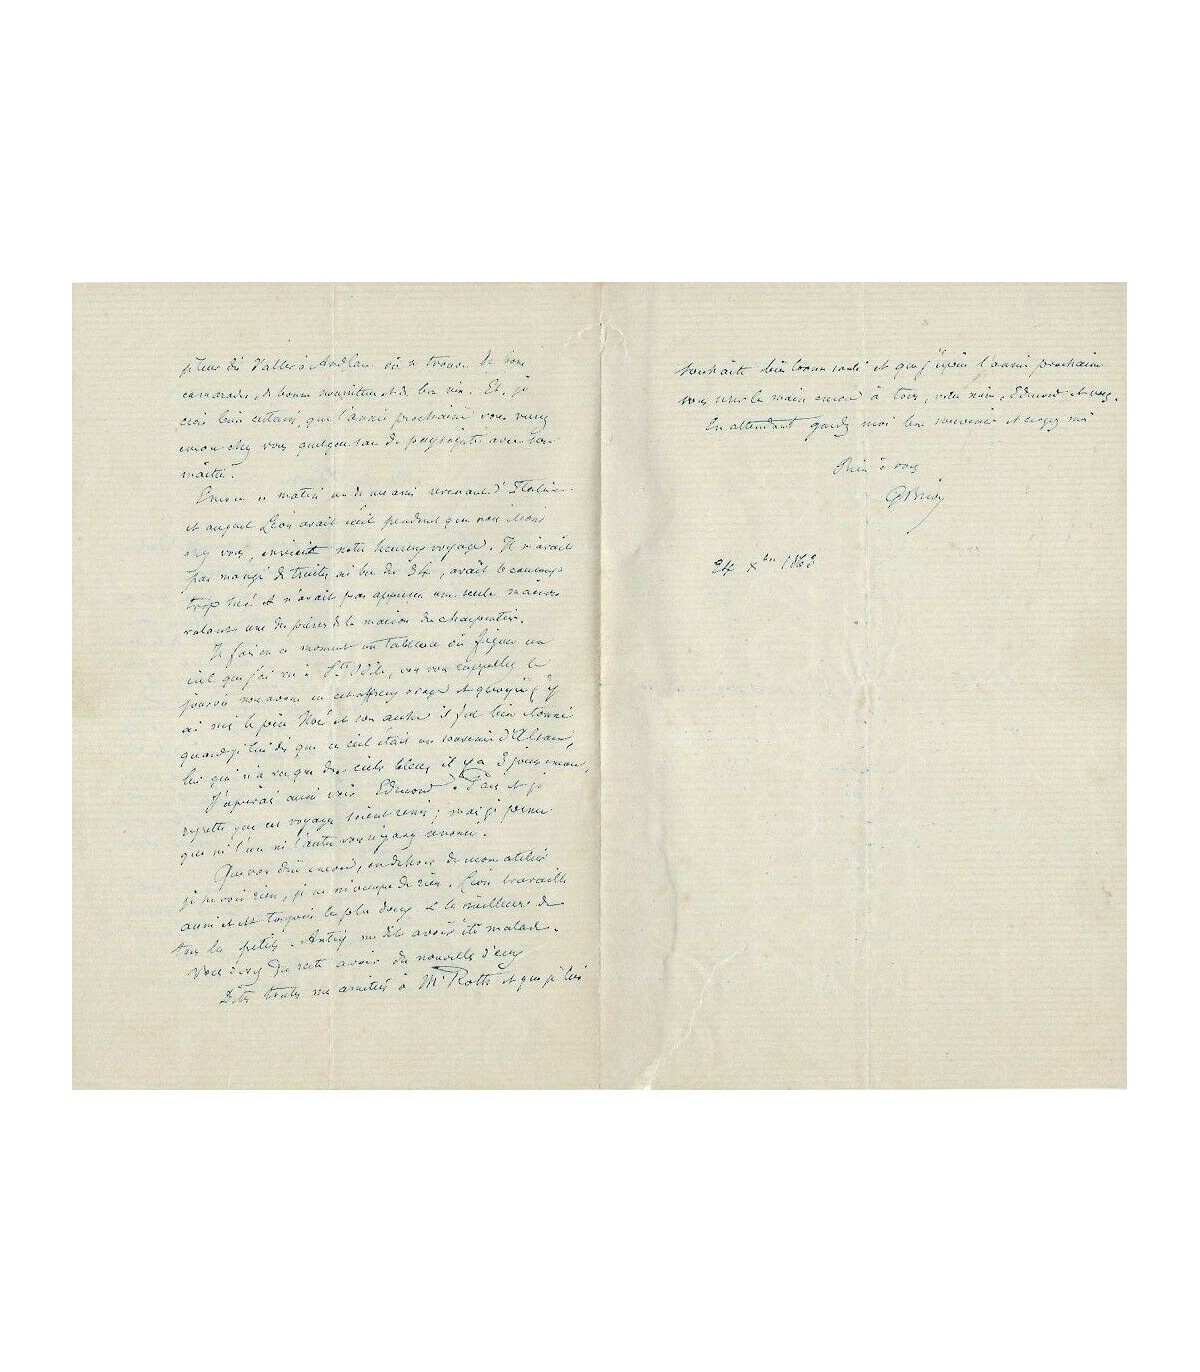 je leur dis d'aller à Andlau où se trouve de bons
camarades, de bonne nourriture et de bon vin. Et, je
crois bien certain, que l'année prochaine vous verrez
encore chez vous quelque de paysagiste avec son
maître.
Encore ce matin un de mes amis revenant d'Italie
et auquel Léon avait écrit pendant que nous étions
chez vous, enviait notre heureux voyage. Il n'avait
pas mangé de truites ni bu du 34, avait beaucoup
trop et n'avait pas apperçu une seule maison
valant une des pièces de la maison du charpentier.
Je fais en ce moment un tableau où figure un
ciel que j'ai vu à Ste Odile, vous vous rappellez le
jour où nous avons eu cet affreux orage et quoique j'y
ai mis le père Noé et son arche il fut bien étonné
quand je lui dis que ce ciel était un souvenir d'Alsace,
lui qui n'a vu que des ciels bleus il y a 3 jours encore.
J'espérais aussi voir Edmond à Paris et je
regrette que ces voyages soient remis; mais je pense
que ni l'un ni l'autre vous n'y avez renoncé.
Que vous dire encore, en dehors de mon atelier
je ne vois rien, je ne m'occupe de rien. Léon travaille
aussi et est toujours le plus doux & le meilleur de
tous les petits. Antig me dit avoir été malade.
Vous devez du reste avoir des nouvelles d'eux
Dites toutes mes amitiés à Mr Roth et que je lui
souhaite bien bonne santé et que j'espère l'année prochaine
vous serrer la main encore à tous, Edmond et vous.
En attendant gardez moi bon souvenir et croyez moi
Bien à vous
G Brion
24 Xbre 1863